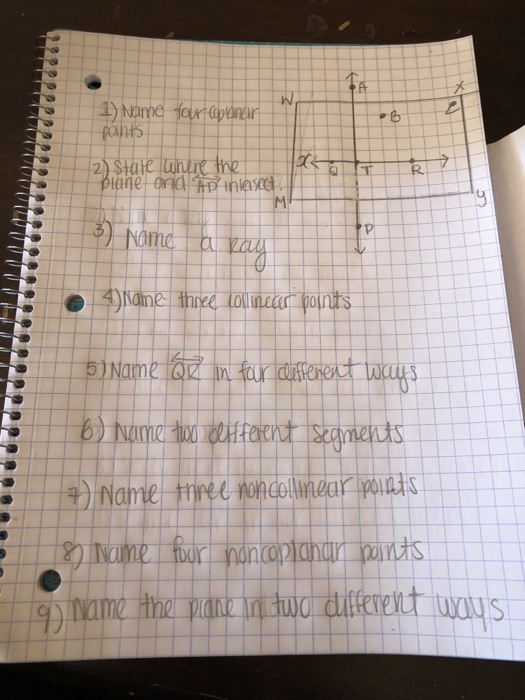 A
W
X
1) Name four coplanar
points
B
2) State where the
plane and AP intersect.
x
Q
T
R
M
y
3) Name a Ray
P
4) Name three collinear points
5) Name QR in four different ways
6) Name two different segments
7) Name three noncollinear points
8) Name four noncoplanar points
9) Name the plane in two different ways